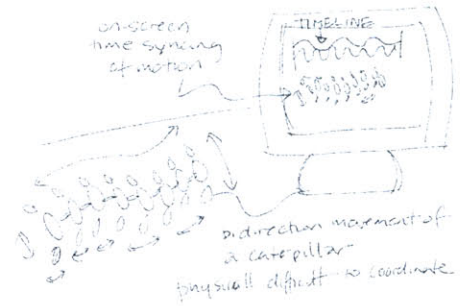 on-screen
time syncing
of motion
TIMELINE
bidirection movement of
a caterpillar
physicall difficult to coordinate